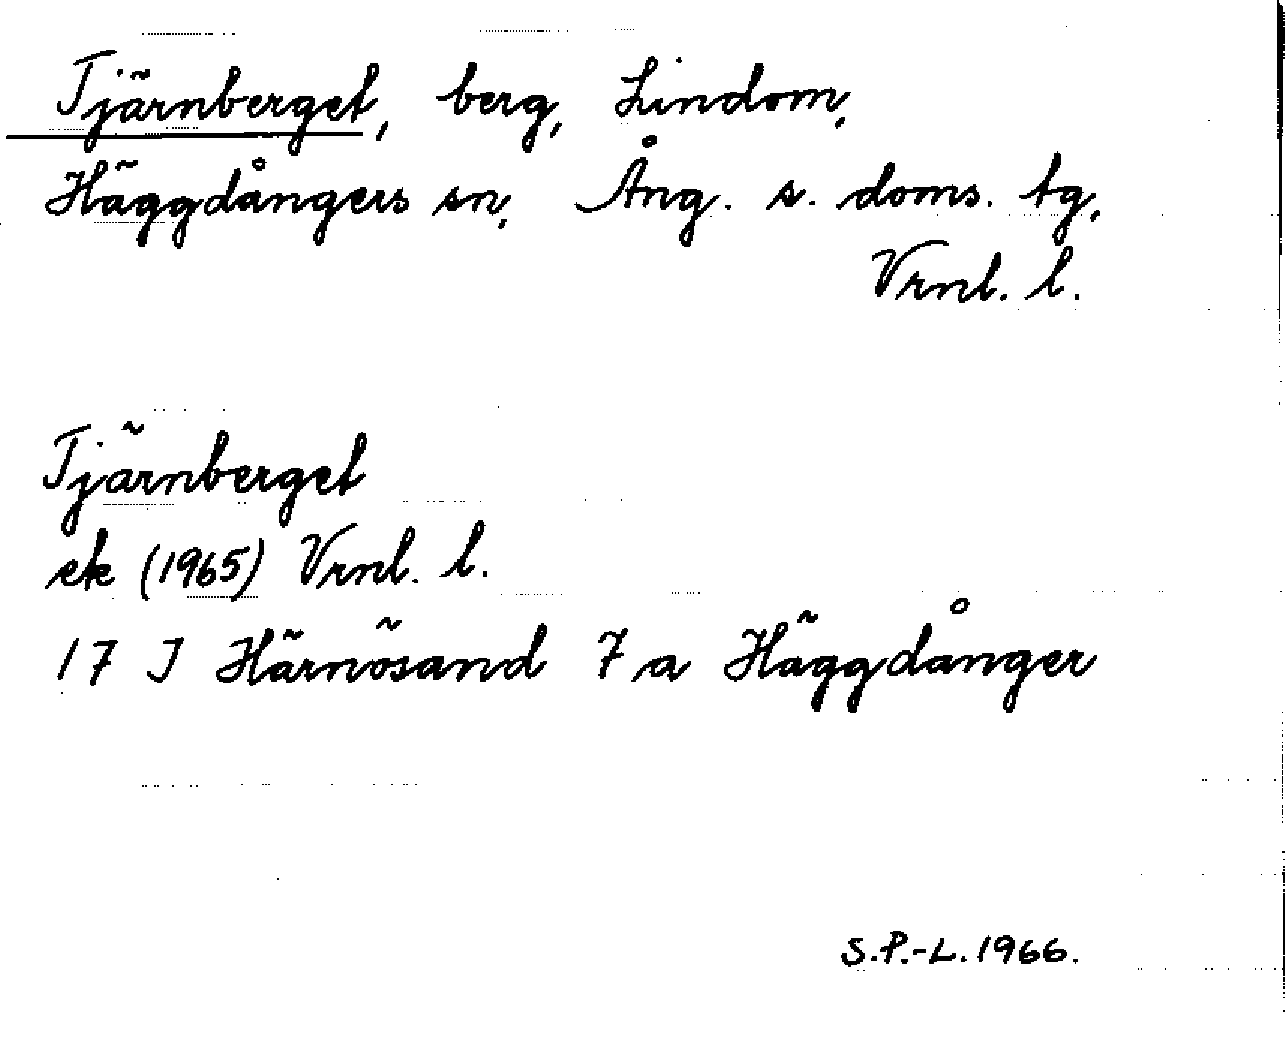 Tjärnberget, berg, Lindom,
Häggdångers sn, Ång. s. doms. tg,
Vrnl. l.
Tjärnberget
ek (1965) Vrnl. l.
17 J Härnösand 7 a Häggdånger
S.P.-L. 1966.